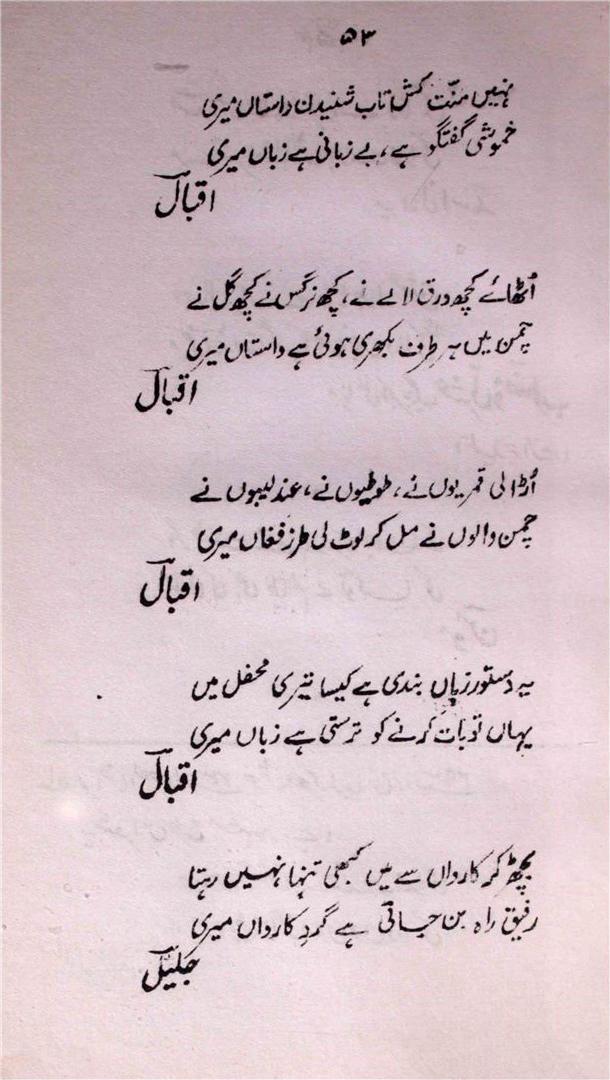 ۵۳
نہیں منّت کش تاب شنیدن داستاں میری
خموشی گفتگو ہے، بے زبانی ہے زباں میری
اقبالؔ
اُٹھائے کچھ ورق لالے نے، کچھ نرگس نے کچھ گل نے
چمن میں ہر طرف بکھری ہوئی ہے داستاں میری
اقبالؔ
اُڑالی قمریوں نے، طوطیوں نے، عندلیبوں نے
چمن والوں نے مل کر لوٹ لی طرز فغاں میری
اقبالؔ
یہ دستور زباں بندی ہے کیسا تیری محفل میں
یہاں تو بات کرنے کو ترستی ہے زباں میری
اقبالؔ
بچھڑ کر کارواں سے میں کبھی تنہا نہیں رہتا
رفیق راہ بن جاتی ہے گردِ کارواں میری
جلیلؔ